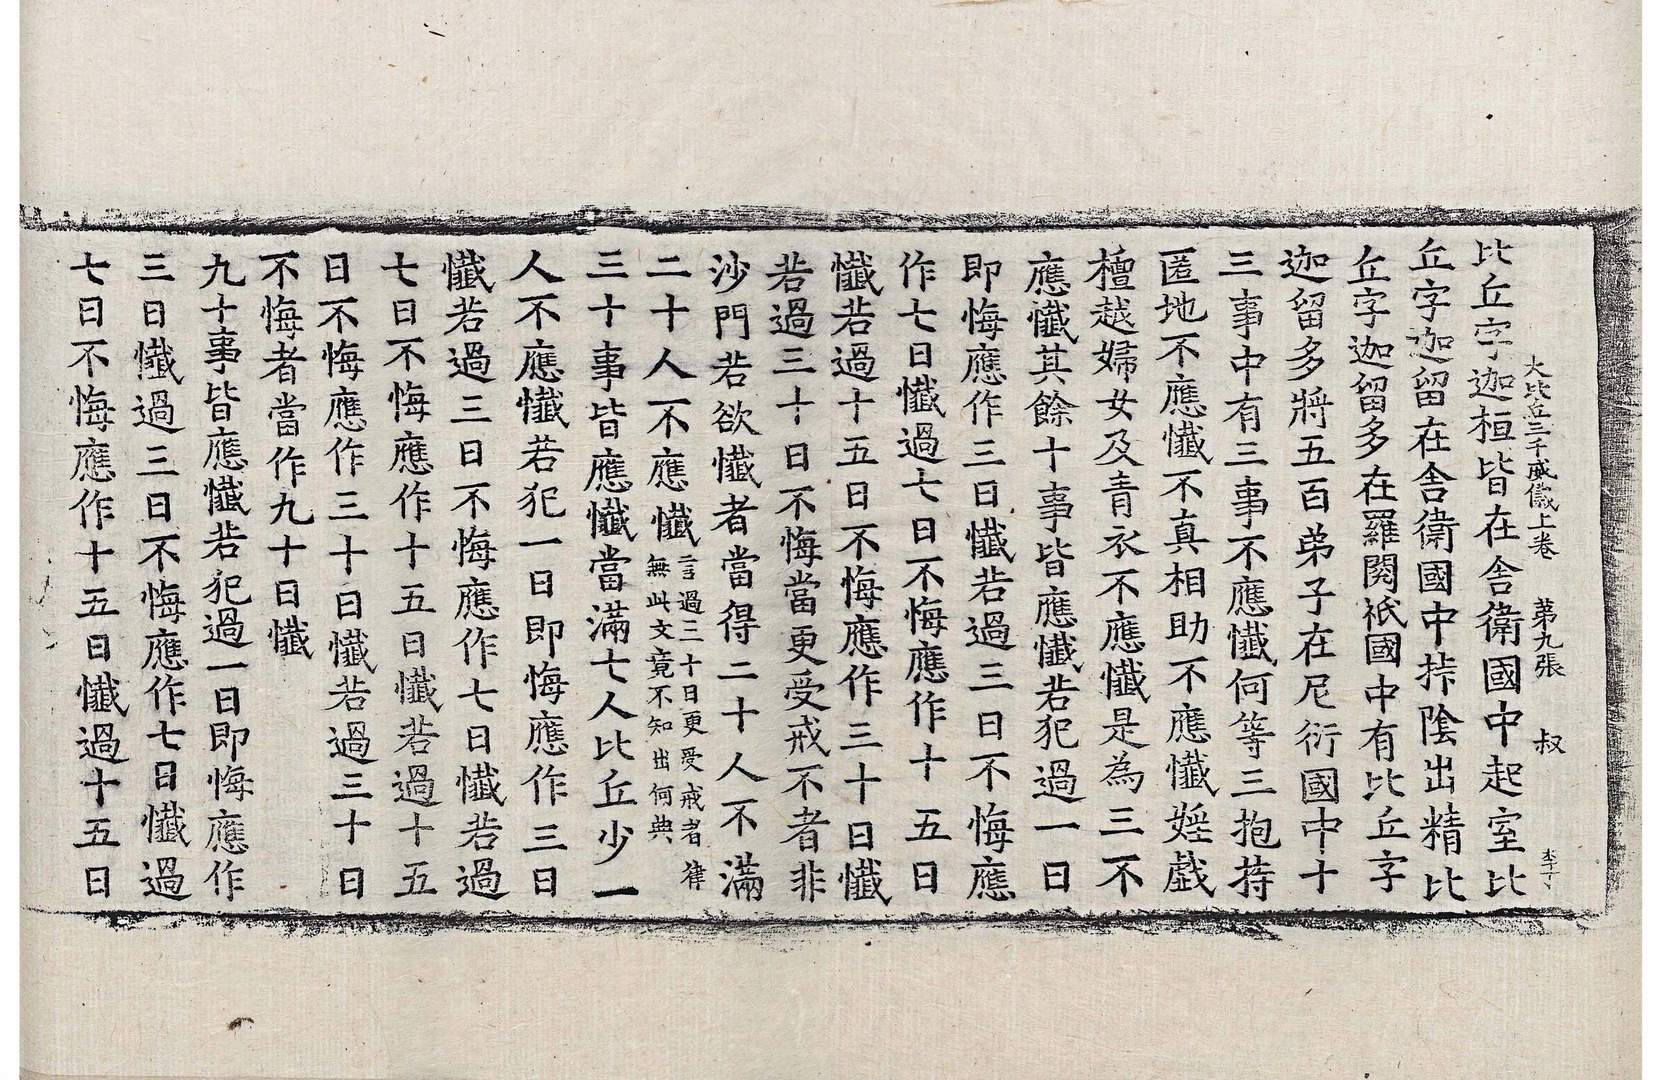 大比丘三千威儀上卷　第九張　叔
比丘字迦桓皆在舍衛國中起室比
丘字迦留在舍衛國中持陰出精比
丘字迦留多在羅閱祇國中有比丘字
迦留多將五百弟子在尼衍國中十
三事中有三事不應懺何等三抱持
匿地不應懺不真相助不應懺婬戲
檀越婦女及青衣不應懺是為三不
應懺其餘十事皆應懺若犯過一日
即悔應作三日懺若過三日不悔應
作七日懺過七日不悔應作十五日
懺若過十五日不悔應作三十日懺
若過三十日不悔當更受戒不者非
沙門若欲懺者當得二十人不滿
二十人不應懺言過三十日更受戒者律
無此文竟不知出何典
三十事皆應懺當滿七人比丘少一
人不應懺若犯一日即悔應作三日
懺若過三日不悔應作七日懺若過
七日不悔應作十五日懺若過十五
日不悔應作三十日懺若過三十日
不悔者當作九十日懺
九十事皆應懺若犯過一日即悔應作
三日懺過三日不悔應作七日懺過
七日不悔應作十五日懺過十五日